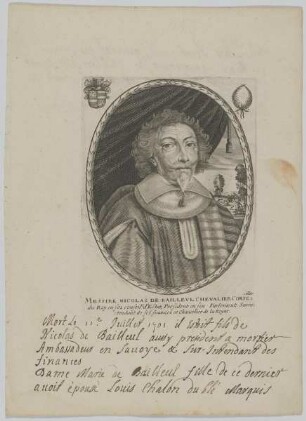 MESSIRE NICOLAS DE BAILLEVL CHEVALIER CON.ER
du Roy en ses conseils d'Estat, President en son Parlement, Surin-
tendant de ses finances et Chancelier de la Reyne
Mort le 11e Juillet 1701 il etoit fils de
Nicolas de Bailleul aussy president a mortier
Ambassadeur en Savoye & Sur-Intendant des
finances
Dame Marie de Bailleul fille de ce dernier
avoit épousé Louis Chalon du Blé Marquis